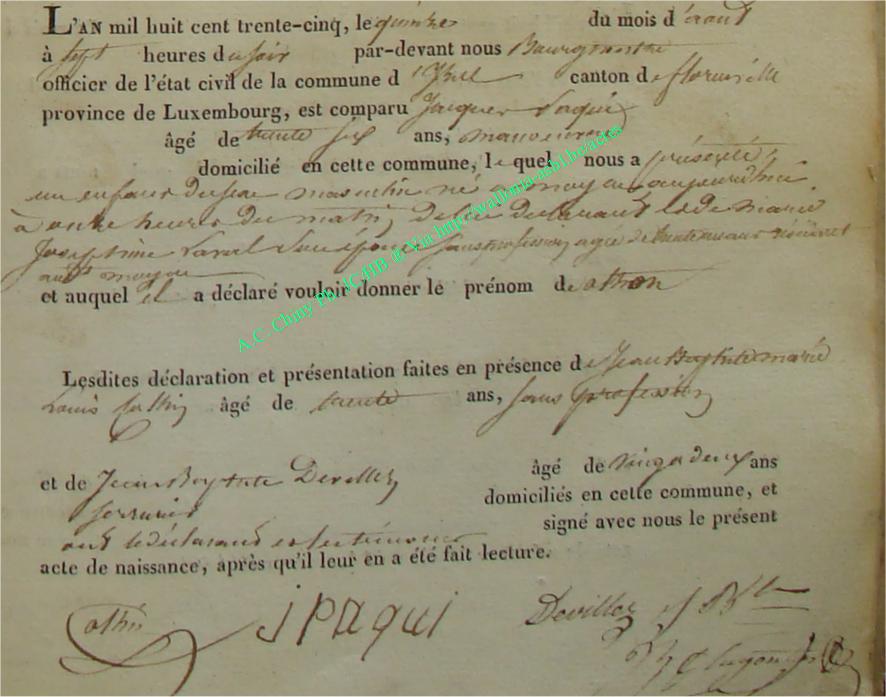 L'AN mil huit cent trente-cinq, le quinze du mois d'août
à sept heures du soir par-devant nous Bourgmestre
officier de l'état civil de la commune d'Izel canton de florenville
province de Luxembourg, est comparu Jacques Paqui
âgé de trente six ans, manoeuvre
domicilié en cette commune, lequel nous a présenté
un enfant du sexe masculin né à moyen aujourd'hui
à onze heures du matin, de lui déclarant et de Marie
Joséphine son épouse sans profession agée de trente
audit moyen
et auquel il a déclaré vouloir donner le prénom de
A.C. Chiny Ph. IC/HB @ Via http://wallonia-mbl.be/actes
Lesdites déclaration et présentation faites en présence de Jean Baptiste marie
Louis âgé de trente ans, sans profession
et de Jean Baptiste Devillez âgé de vingt deux ans
serrurier domiciliés en cette commune, et
ont le déclarant et les témoins signé avec nous le présent
acte de naissance, après qu'il leur en a été fait lecture.
J PAqui Devillez J Bte